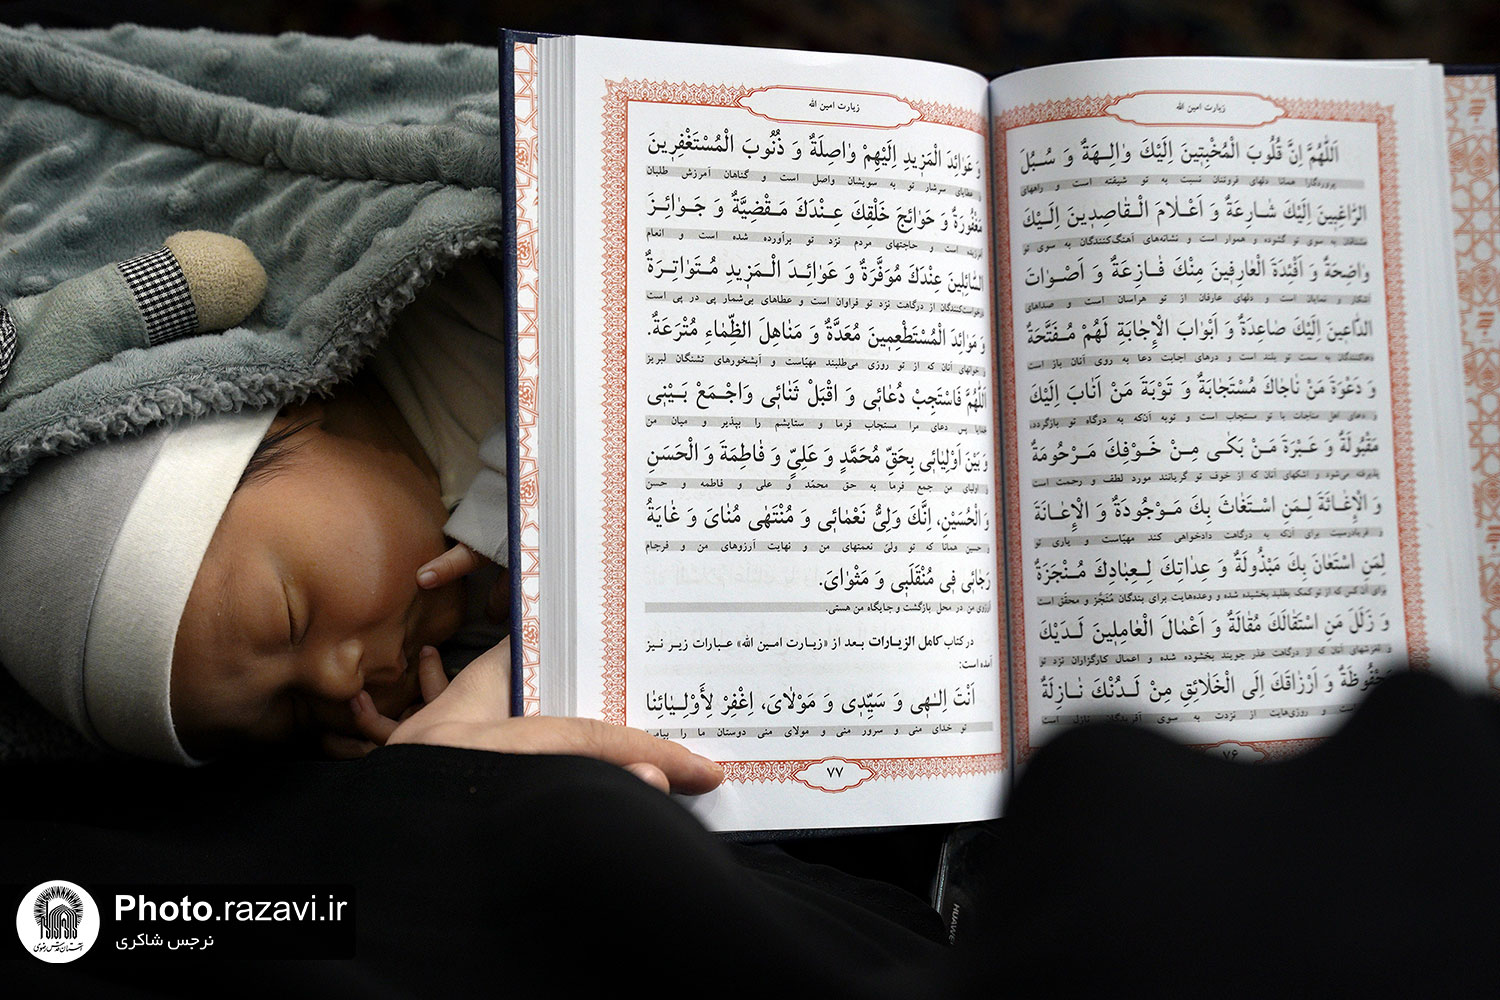 زیارت امین الله
اَللّٰهُمَّ اِنَّ قُلُوبَ الْمُخْبِتِینَ اِلَیْكَ وٰالِهَةٌ وَ سُبُلَ
پروردگارا همانا دلهای فروتنان نسبت به تو شیفته است و راههای
الرّٰاغِبِینَ اِلَیْكَ شٰارِعَةٌ وَ اَعْلٰامَ الْقٰاصِدِینَ اِلَیْكَ
مشتاقان به سوی تو گشوده و هموار است و نشانه‌های آهنگ‌کنندگان به سوی تو
وٰاضِحَةٌ وَ اَفْئِدَةَ الْعٰارِفِینَ مِنْكَ فٰازِعَةٌ وَ اَصْوٰاتَ
آشکار و نمایان است و دلهای عارفان از تو هراسان است و صداهای
الدّٰاعِینَ اِلَیْكَ صٰاعِدَةٌ وَ اَبْوٰابَ الْاِجٰابَةِ لَهُمْ مُفَتَّحَةٌ
دعاکنندگان به سمت تو بلند است و درهای اجابت دعا به روی آنان باز است
وَ دَعْوَةَ مَنْ نٰاجٰاكَ مُسْتَجٰابَةٌ وَ تَوْبَةَ مَنْ اَنٰابَ اِلَیْكَ
و دعای اهل مناجات با تو مستجاب است و توبه آن‌که به درگاه تو بازگردد،
مَقْبُولَةٌ وَ عَبْرَةَ مَنْ بَکٰی مِنْ خَوْفِكَ مَرْحُومَةٌ
پذیرفته می‌شود و اشکهای آنان که از خوف تو گریانند مورد لطف و رحمت است
وَ الْاِغٰاثَةَ لِمَنِ اسْتَغٰاثَ بِكَ مَوْجُودَةٌ وَ الْاِعٰانَةَ
و فریادرسیت برای آن‌که به درگاهت دادخواهی کند مهیّاست و یاری تو
لِمَنِ اسْتَعٰانَ بِكَ مَبْذُولَةٌ وَ عِدٰاتِكَ لِعِبٰادِكَ مُنْجَزَةٌ
برای آن کس که از تو کمک بطلبد بخشیده شده و وعده‌هایت برای بندگان مُنَجَّز و محقّق است
وَ زَلَلَ مَنِ اسْتَقٰالَكَ مُقٰالَةٌ وَ اَعْمٰالَ الْعٰامِلِینَ لَدَیْكَ
و لغزشهای آنان که از درگاهت عذر جویند بخشوده شده و اعمال کارگزاران نزد تو
مَحْفُوظَةٌ وَ اَرْزٰاقَكَ اِلَی الْخَلٰائِقِ مِنْ لَدُنْكَ نٰازِلَةٌ
است و روزی‌هایت از نزدت به سوی آفریدگان نازل است
۷۶
زیارت امین الله
وَ عَوٰائِدَ الْمَزِیدِ اِلَیْهِمْ وٰاصِلَةٌ وَ ذُنُوبَ الْمُسْتَغْفِرِینَ
عطایای سرشار تو به سویشان واصل است و گناهان آمرزش طلبان
مَغْفُورَةٌ وَ حَوٰائِجَ خَلْقِكَ عِنْدَكَ مَقْضِیَّةٌ وَ جَوٰائِزَ
آمرزیده است و حاجتهای مردم نزد تو برآورده شده است و انعام
السّٰائِلِینَ عِنْدَكَ مُوَفَّرَةٌ وَ عَوٰائِدَ الْمَزِیدِ مُتَوٰاتِرَةٌ
درخواست‌کنندگان از درگاهت نزد تو فراوان است و عطاهای بی‌شمار پی در پی است
وَ مَوٰائِدَ الْمُسْتَطْعِمِینَ مُعَدَّةٌ وَ مَنٰاهِلَ الظِّمٰاءِ مُتْرَعَةٌ.
و خوانهای آنان که از تو روزی می‌طلبند مهیّاست و آبشخورهای تشنگان لبریز
اَللّٰهُمَّ فَاسْتَجِبْ دُعٰائِی وَ اقْبَلْ ثَنٰائِی وَاجْمَعْ بَیْنِی
خدایا پس دعای مرا مستجاب فرما و ستایشم را بپذیر و میان من
وَ بَیْنَ اَوْلِیٰائِی بِحَقِّ مُحَمَّدٍ وَ عَلِیٍّ وَ فٰاطِمَةَ وَ الْحَسَنِ
و اولیای من جمع فرما به حق محمّد و علی و فاطمه و حسن
وَ الْحُسَیْنِ، اِنَّكَ وَلِیُّ نَعْمٰائِی وَ مُنْتَهٰی مُنٰایَ وَ غٰایَةُ
و حسین همانا که تو ولیّ نعمتهای من و نهایت آرزوهای من و فرجام
رَجٰائِی فِی مُنْقَلَبِی وَ مَثْوٰایَ.
آرزوی من در محل بازگشت و جایگاه من هستی.
در کتاب کامل الزیارات بعد از «زیارت امین الله» عبارات زیر نیز
آمده است:
اَنْتَ اِلٰهِی وَ سَیِّدِی وَ مَوْلٰایَ، اِغْفِرْ لِأَوْلِیٰائِنٰا
تو خدای منی و سرور منی و مولای منی دوستان ما را بیامرز
۷۷
HUAWEI
Photo.razavi.ir
نرجس شاکری
آستان قدس رضوی